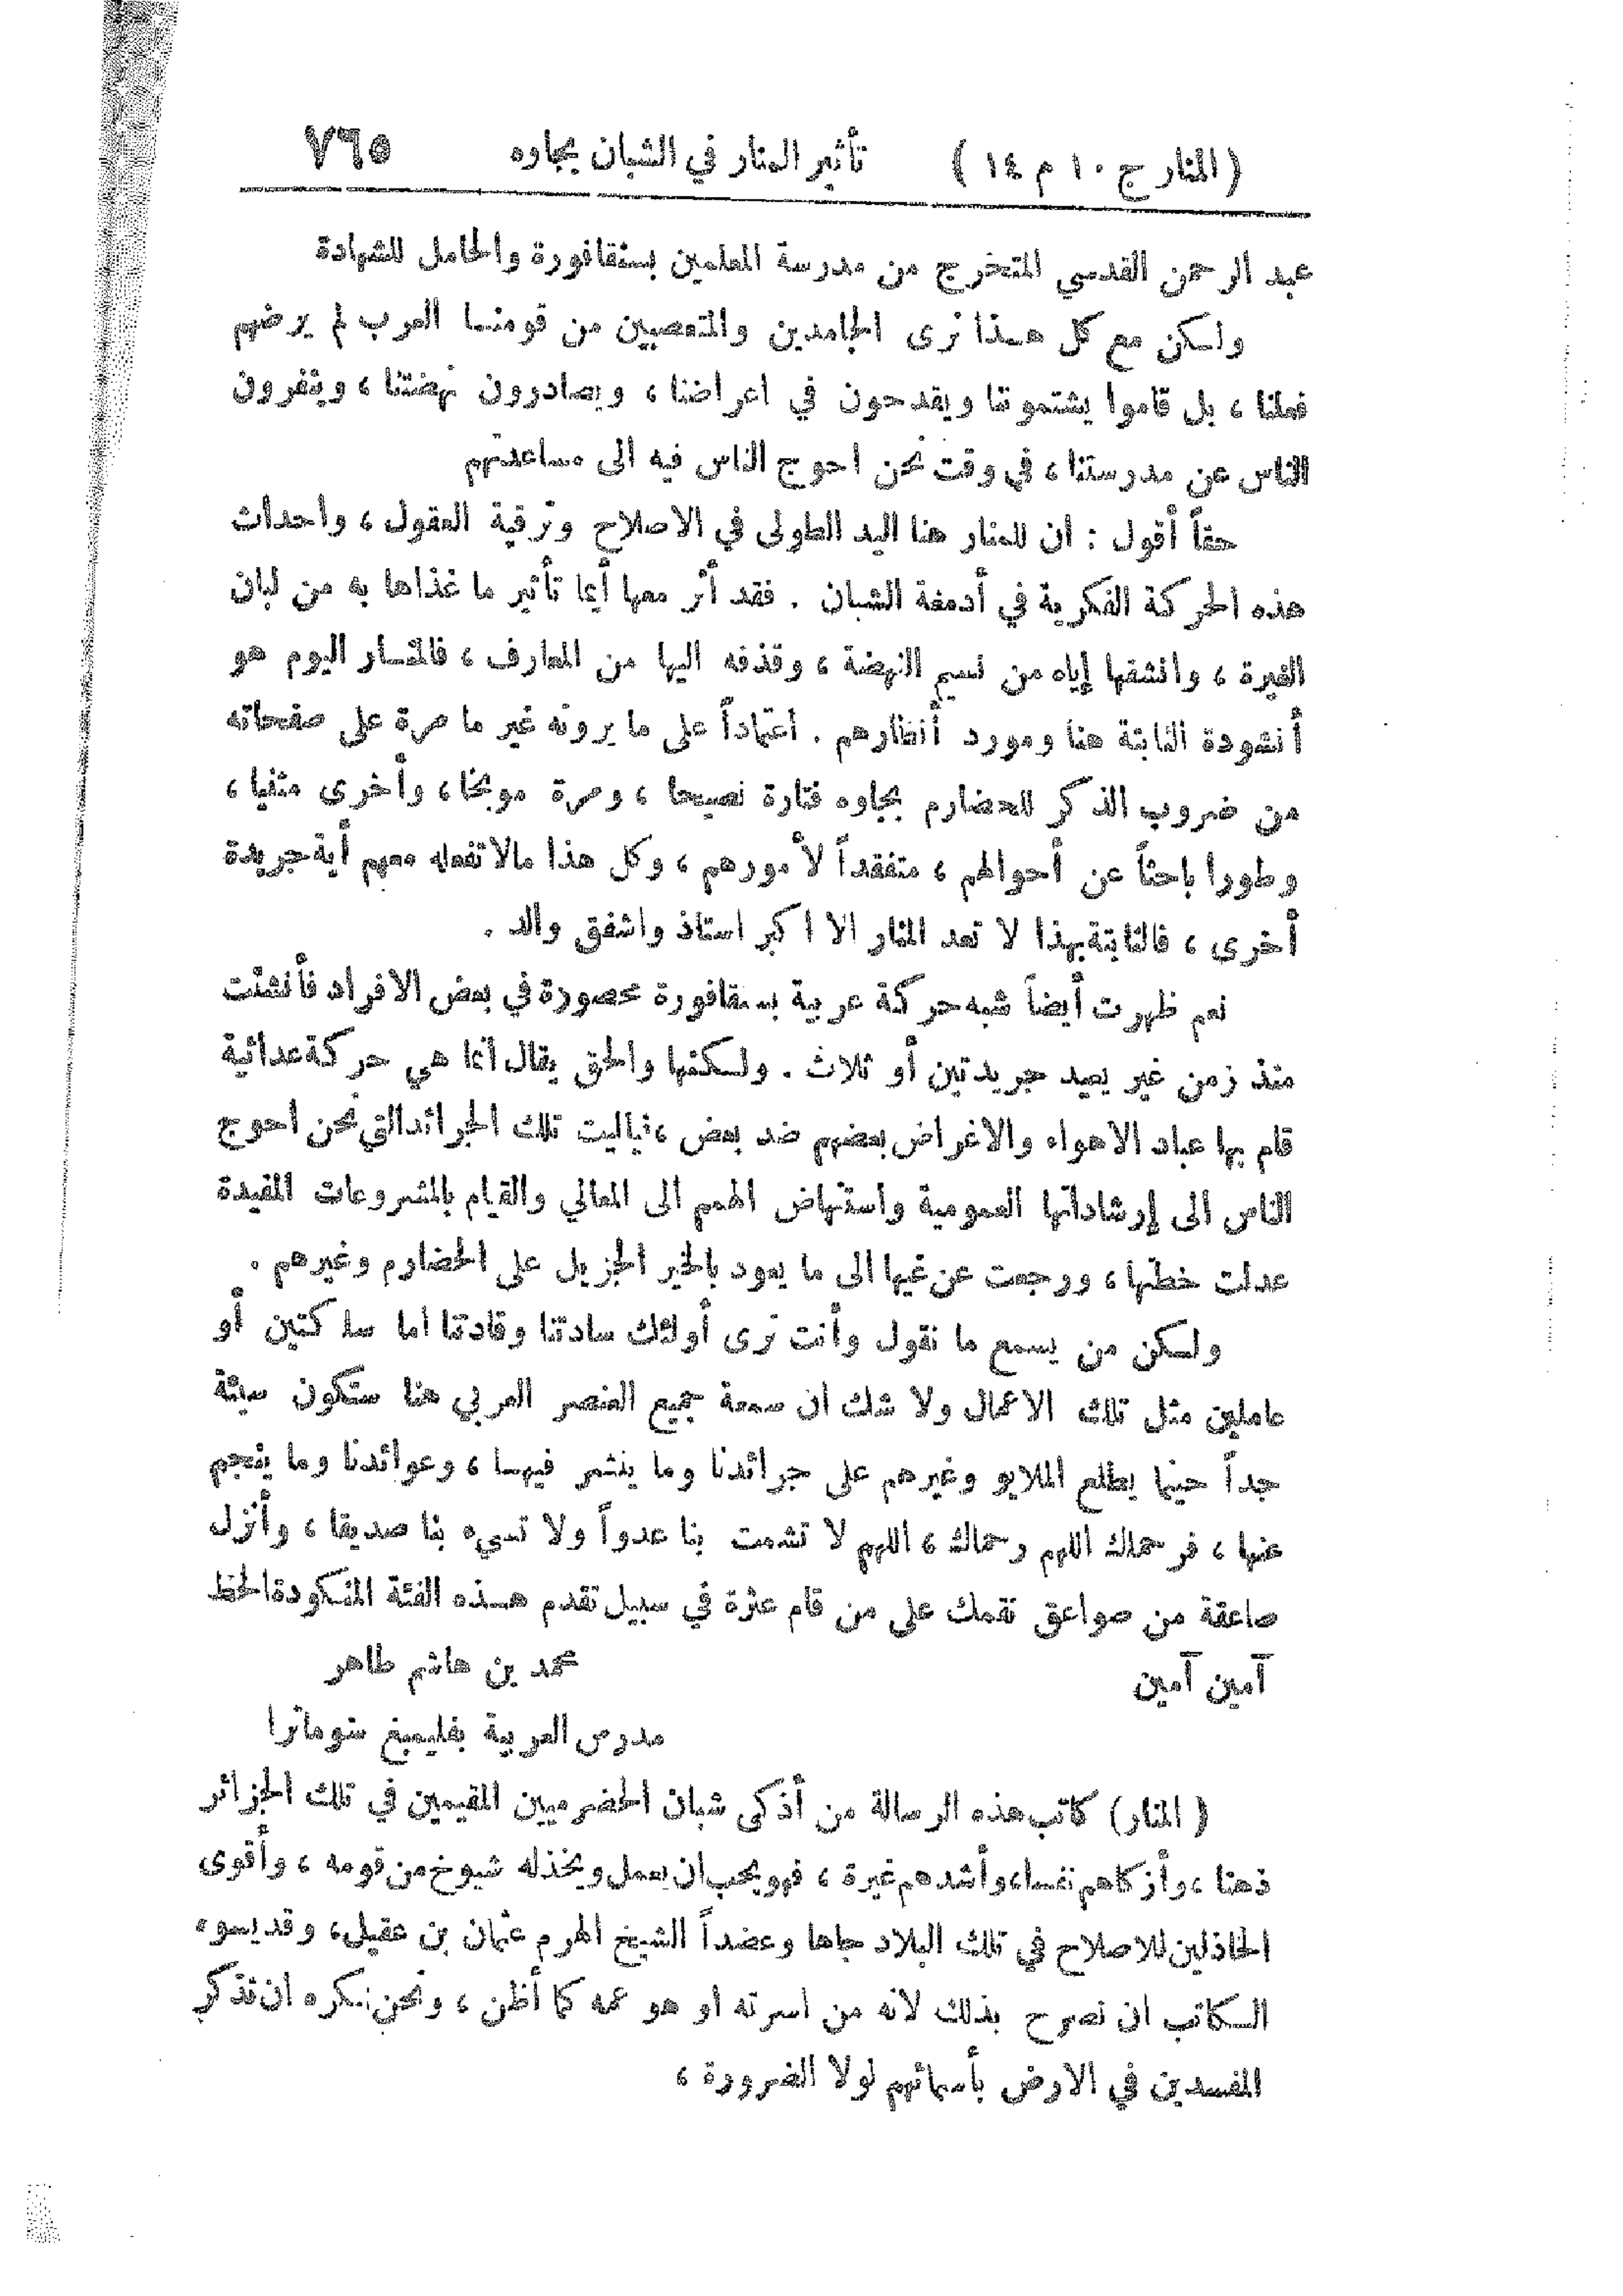 (المنار ج ١٠ م ١٤) تأثير المنار في الشبان بجاوه ٧٦٥
عبد الرحمن القدسي المتخرج من مدرسة المعلمين بسنقافورة والحامل للشهادة
ولكن مع كل هذا نرى الجامدين والمتعصبين من قومنا العرب لم يرضهم
فعلنا ، بل قاموا يشتموننا ويقدحون في اعراضنا ، ويصادرون نهضتنا ، وينفرون
الناس عن مدرستنا ، في وقت نحن احوج الناس فيه الى مساعدتهم
حقاً أقول : ان للمنار هنا اليد الطولى في الاصلاح وترقية العقول ، واحداث
هذه الحركة الفكرية في أدمغة الشبان . فقد أثر معها أيما تأثير ما غذاها به من لبان
الغيرة ، وانشقها إياه من نسيم النهضة ، وقذفه اليها من المعارف ، فالمنار اليوم هو
أنشودة النابتة هنا ومورد أنظارهم . اعتماداً على ما يرونه غير ما مرة على صفحاته
من ضروب الذكر للحضارم بجاوه فتارة نصيحا ، ومرة موبخا ، وأخرى مثنيا ،
وطورا باحثاً عن أحوالهم ، متفقداً لأمورهم ، وكل هذا مالا تفعله معهم أية جريدة
أخرى ، فالنابتة بهذا لا تعد المنار الا اكبر استاذ واشفق والد .
نعم ظهرت أيضاً شبه حركة عربية بسنقافورة محصورة في بعض الافراد فأنشئت
منذ زمن غير بعيد جريدتين أو ثلاث . ولكنها والحق يقال انما هي حركة عدائية
قام بها عباد الاهواء والاغراض بعضهم ضد بعض ، فياليت تلك الجرائد التي نحن احوج
الناس الى إرشاداتها العمومية واستنهاض الهمم الى المعالي والقيام بالمشروعات المفيدة
عدلت خطتها ، ورجعت عن غيها الى ما يعود بالخير الجزيل على الحضارم وغيرهم .
ولكن من يسمع ما نقول وأنت ترى أولئك سادتنا وقادتنا اما ساكتين أو
عاملين مثل تلك الاعمال ولا شك ان سمعة جميع العنصر العربي هنا ستكون سيئة
جداً حينما يطلع الملايو وغيرهم على جرائدنا وما ينشر فيها ، وعوائدنا وما ينجم
عنها ، فرحماك اللهم رحماك ، اللهم لا تشمت بنا عدواً ولا تسيء بنا صديقا ، وأنزل
صاعقة من صواعق نقمك على من قام عثرة في سبيل تقدم هذه الفئة المنكودة الحظ
آمين آمين محمد بن هاشم طاهر
مدرس العربية بفليمبغ سوماترا
( المنار) كاتب هذه الرسالة من أذكى شبان الحضرميين المقيمين في تلك الجزائر
ذهنا ، وأزكاهم نفسا ، وأشدهم غيرة ، فهو يحب ان يعمل ويخذله شيوخ من قومه ، وأقوى
الخاذلين للاصلاح في تلك البلاد جاها وعضداً الشيخ الهرم عثمان بن عقيل ، وقد يسوء
الكاتب ان نصرح بذلك لانه من اسرته او هو عمه كما أظن ، ونحن نكره ان نذكر
المفسدين في الارض بأسمائهم لولا الضرورة ،